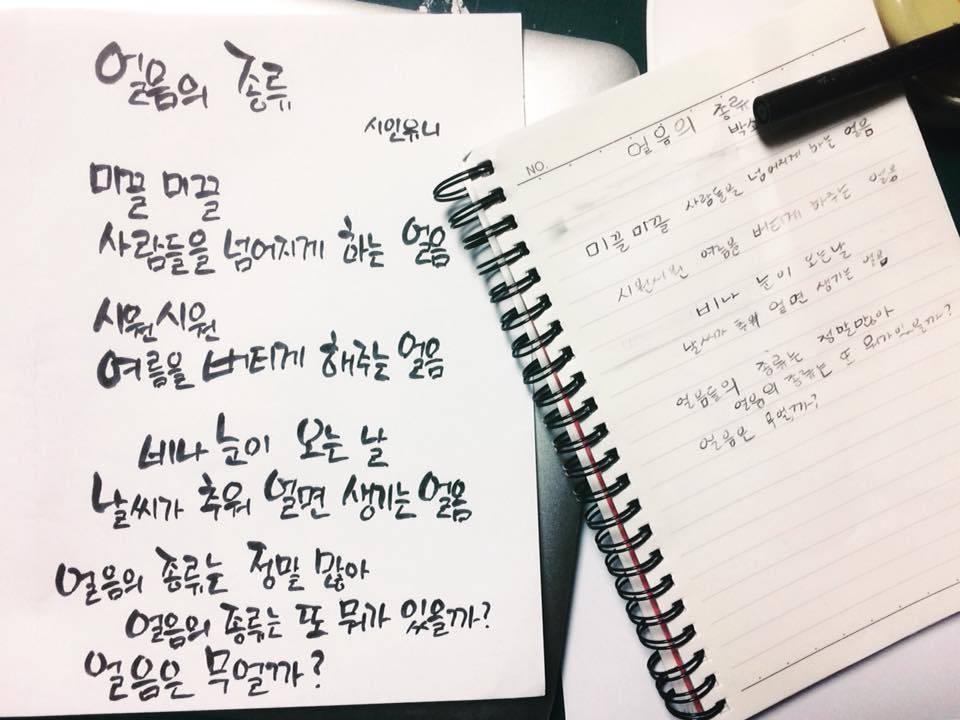 얼음의 종류
시인유니
미끌 미끌
사람들을 넘어지게 하는 얼음
시원시원
여름을 버티게 해주는 얼음
비나 눈이 오는 날
날씨가 추워 얼면 생기는 얼음
얼음의 종류는 정말 많아
얼음의 종류는 또 뭐가 있을까?
얼음은 무얼까?
NO.
얼음의 종류
미끌미끌 사람들을 넘어지게 하는 얼음
시원시원 여름을 버티게 해주는 얼음
비나 눈이 오는날
날씨가 추워 얼면 생기는 얼음
얼음들의 종류는 정말많아
얼음의 종류는 또 뭐가있을까?
얼음은 무얼까?